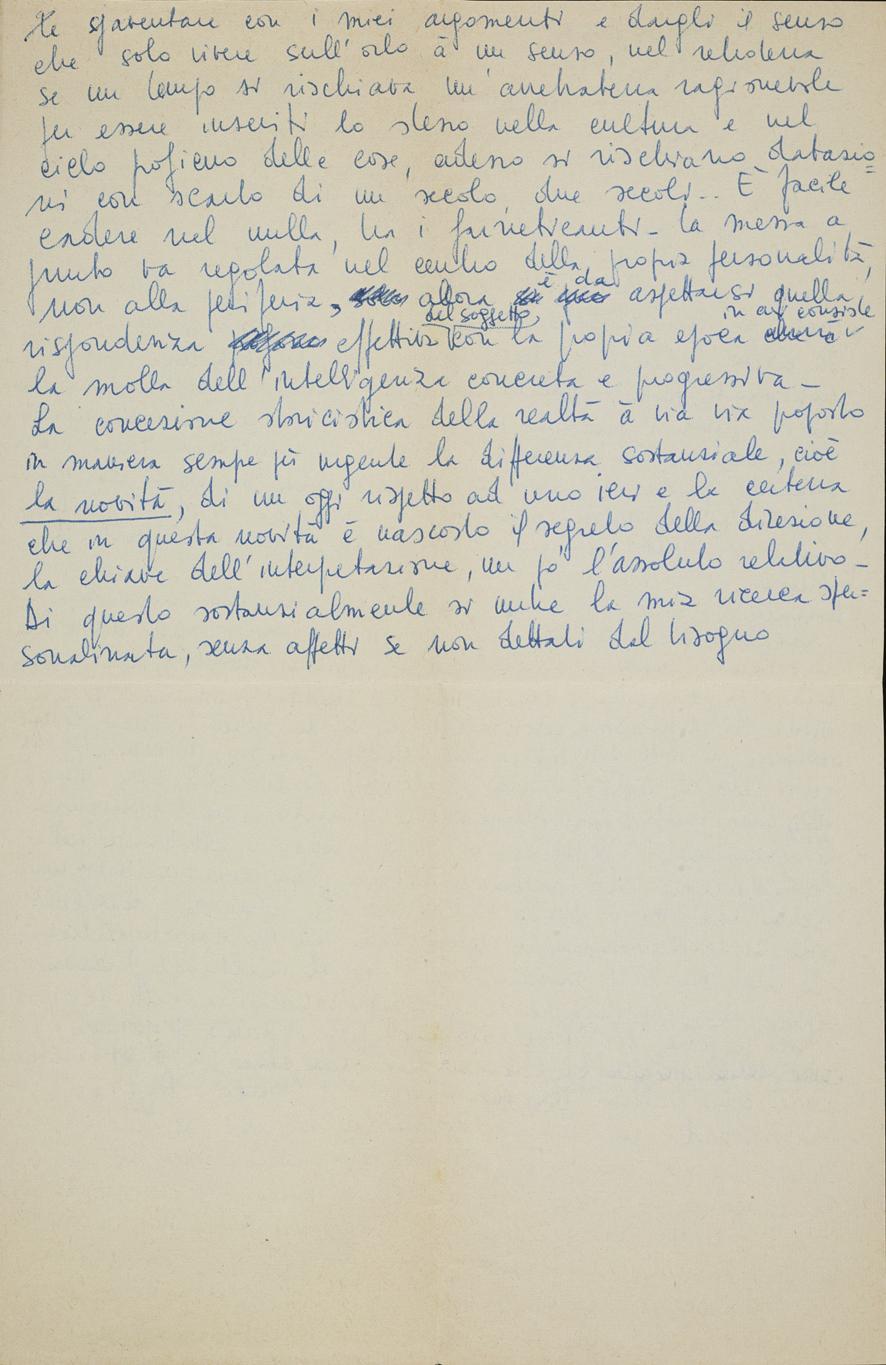 te spaventare con i miei argomenti e dargli il senso
che solo vivere sull'orlo à un senso, nel
se un tempo si rischiava un'arretratezza ragionevole
per essere inseriti lo stesso nella cultura e nel
ciclo proficuo delle cose, adesso si rischiano datazio=
ni con scarto di un secolo, due secoli... È facile
cadere nel nulla, tra i farneticanti - la messa a
punto va regolata nel centro della propria personalità,
non alla periferia, allora è da aspettarsi quella
rispondenza effettiva del soggetto, con la propria epoca in cui consiste
la molla dell'intelligenza concreta e progressiva -
La concezione storicistica della realtà à via via proposto
in maniera sempre più urgente la differenza sostanziale, cioè
la novità, di un oggi rispetto ad uno ieri e la certezza
che in questa novità è nascosto il segreto della direzione,
la chiave dell'interpretazione, un po' l'assoluto relativo -
Di questo sostanzialmente si nutre la mia ricerca sper=
sonalizzata, senza affetti se non dettati dal bisogno